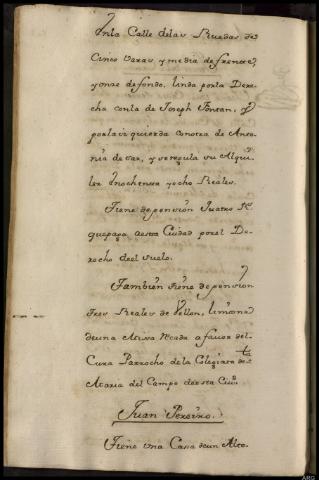 Enla Calle delas Ruedas de
Cinco Varas y media de frente,
y onze de fondo, linda porla Dere-
cha conla de Joseph Fontan, y
porla izquierda conotra de Anto-
nia de vaz, y seregula su Alqui-
ler Enochenta yocho Reales.
Tiene de pension Quatro Rs.
quepaga aesta Ciudad porel De-
recho deel suelo.
Tambien tiene de pension
tres Reales de Vellon, limosna
deuna Missa Rezada a favor del
Cura Parrocho de la Colegiata de Sta
Maria del Campo deesta Ciud.
Juan Pereiro.
Tiene una Casa deun Alto
ARG